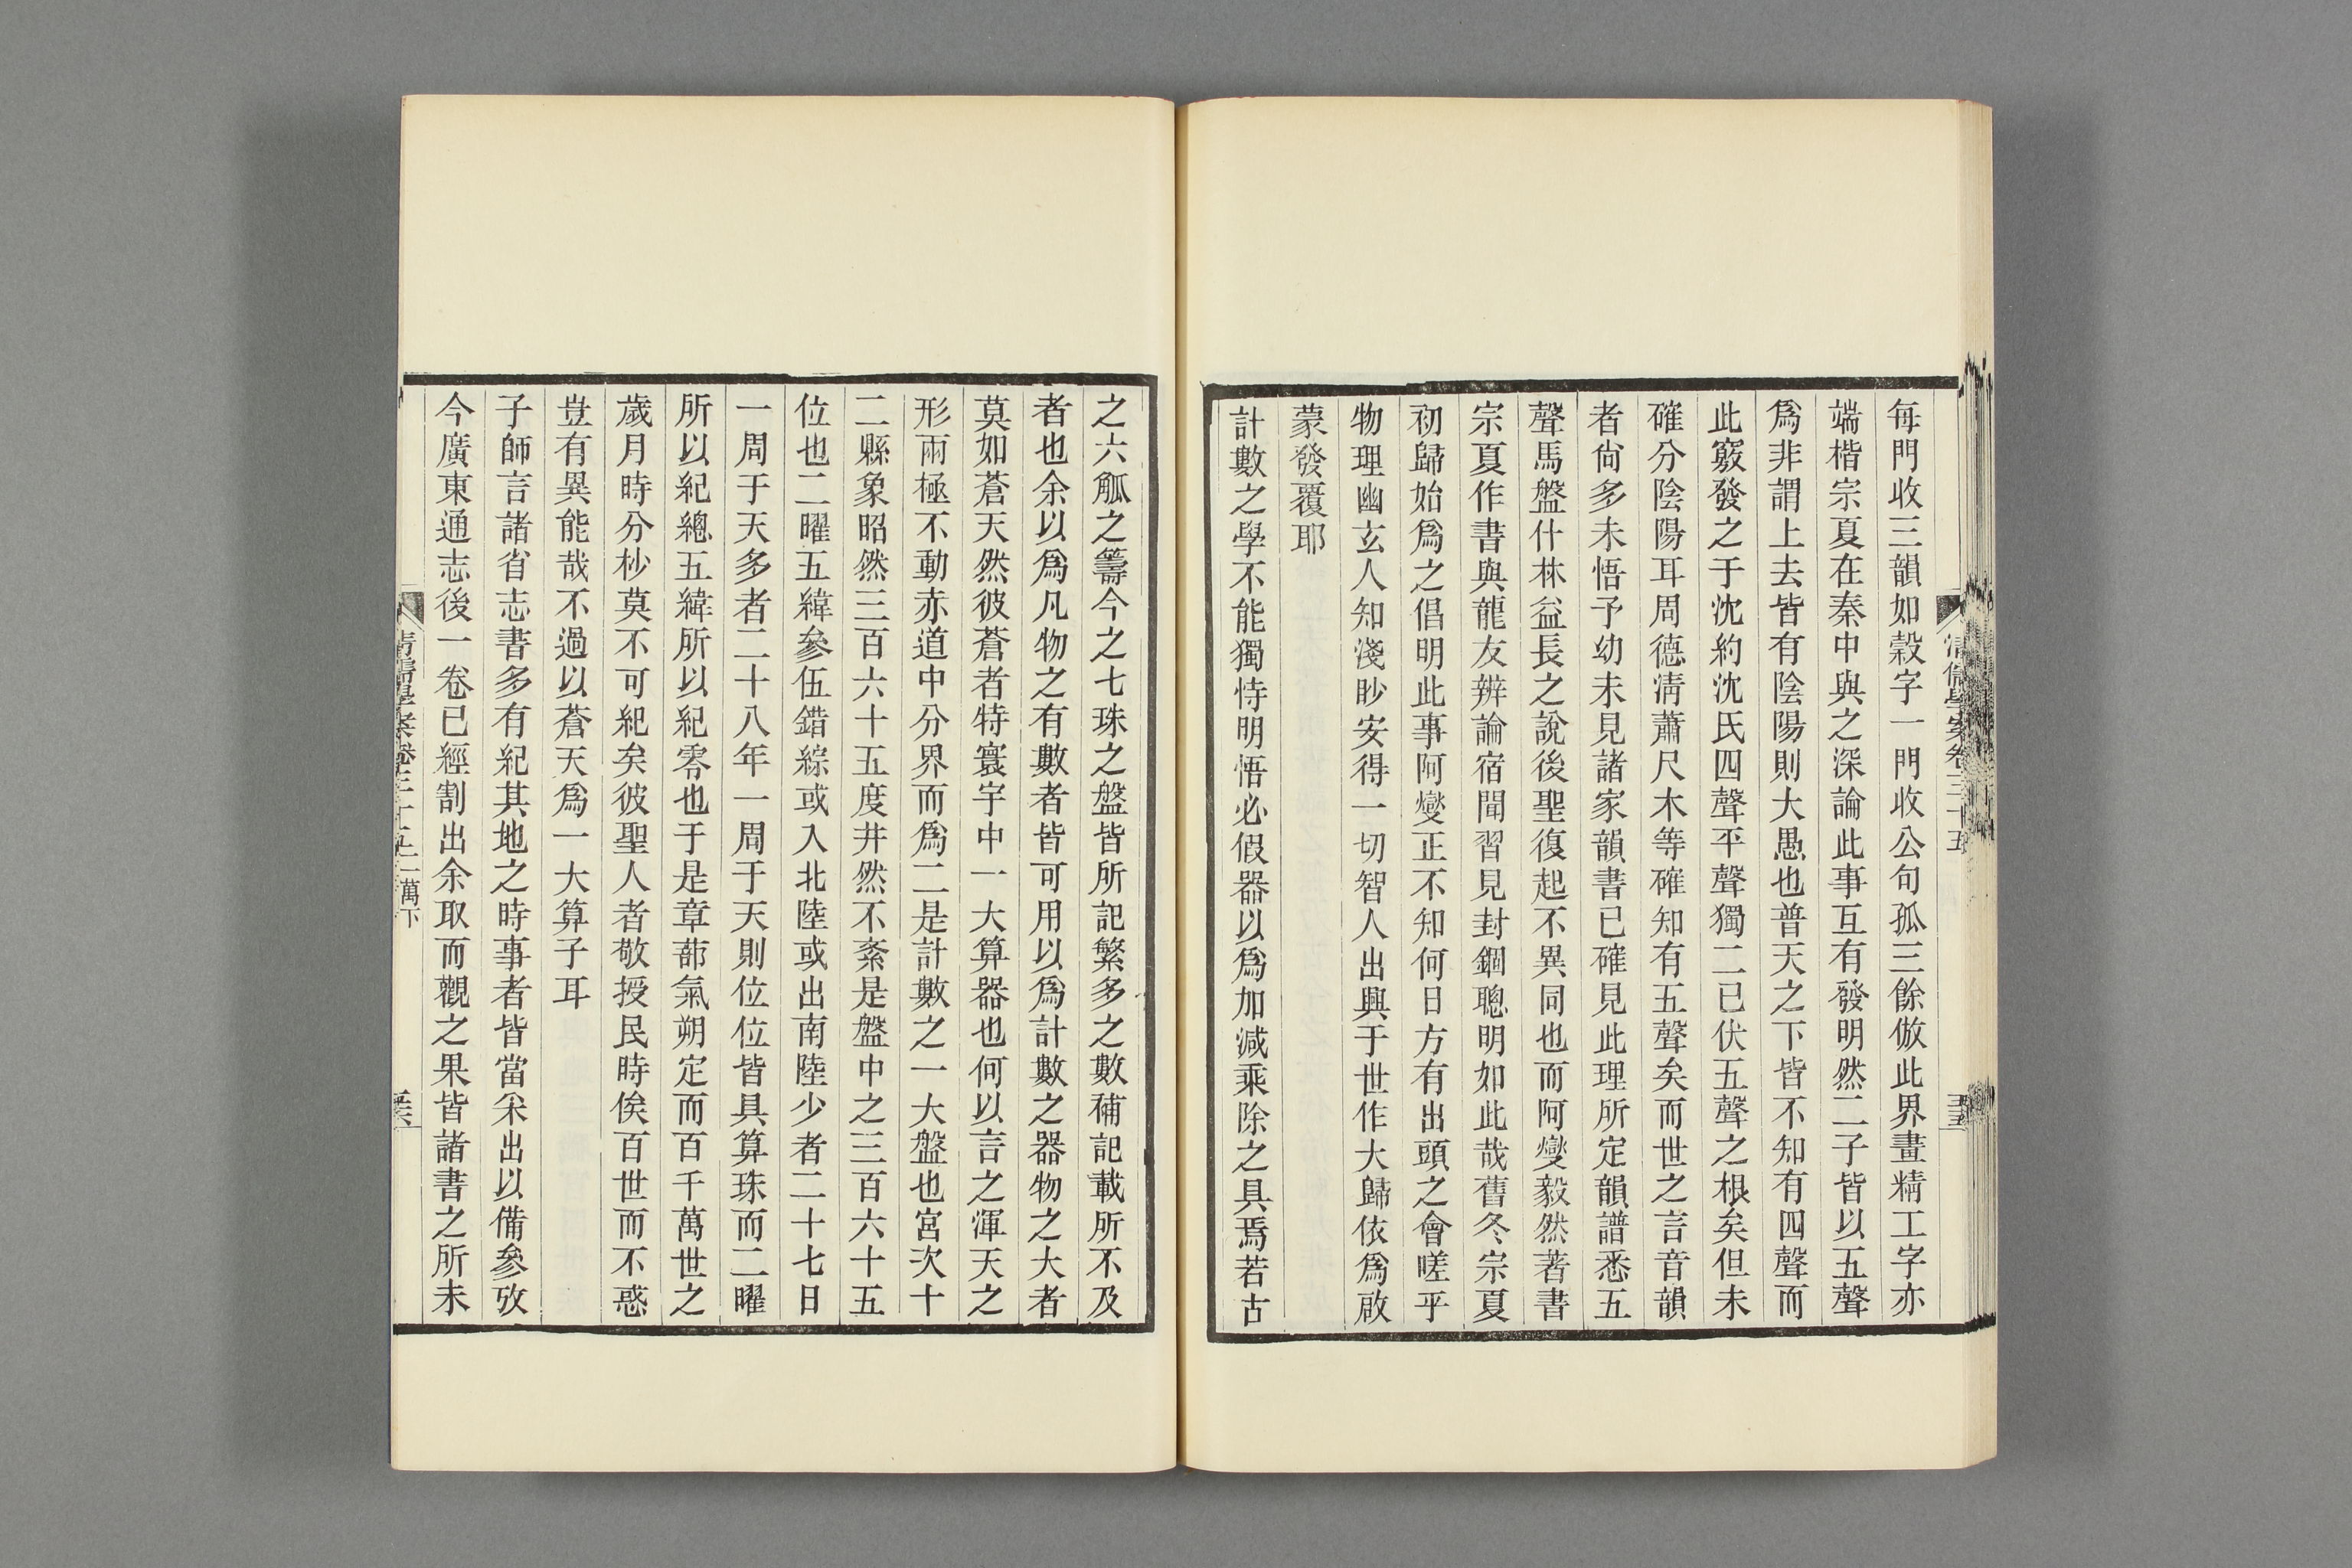 清儒學案卷三十五
五五
每門收三韻如穀字一門收公句孤三餘倣此界畫精工字亦
端楷宗夏在秦中與之深論此事互有發明然二子皆以五聲
爲非謂上去皆有陰陽則大愚也普天之下皆不知有四聲而
此竅發之于沈約沈氏四聲平聲獨二已伏五聲之根矣但未
確分陰陽耳周德淸蕭尺木等確知有五聲矣而世之言音韻
者尙多未悟予幼未見諸家韻書已確見此理所定韻譜悉五
聲馬盤什林益長之說後聖復起不異同也而阿㸅毅然著書
宗夏作書與龍友辨論宿聞習見封錮聰明如此哉舊冬宗夏
初歸始爲之倡明此事阿㸅正不知何日方有出頭之會嗟乎
物理幽玄人知淺眇安得一切智人出興于世作大歸依爲啟
蒙發覆耶
計數之學不能獨恃明悟必假器以爲加減乘除之具焉若古
之六觚之籌今之七珠之盤皆所記繁多之數補記載所不及
者也余以爲凡物之有數者皆可用以爲計數之器物之大者
莫如蒼天然彼蒼者特寰宇中一大算器也何以言之渾天之
形兩極不動赤道中分界而爲二是計數之一大盤也宮次十
二縣象昭然三百六十五度井然不紊是盤中之三百六十五
位也二曜五緯參伍錯綜或入北陸或出南陸少者二十七日
一周于天多者二十八年一周于天則位位皆具算珠而二曜
所以紀總五緯所以紀零也于是章蔀氣朔定而百千萬世之
歲月時分杪莫不可紀矣彼聖人者敬授民時俟百世而不惑
豈有異能哉不過以蒼天爲一大算子耳
子師言諸省志書多有紀其地之時事者皆當采出以備參攷
今廣東通志後一卷已經割出余取而觀之果皆諸書之所未
清儒學案卷三十五
二萬下
五六